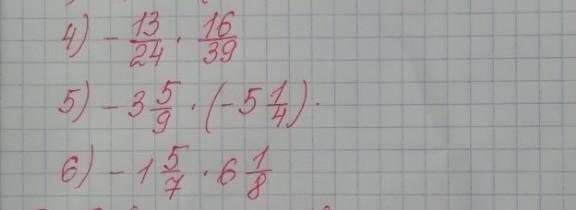 4) - 13/24 · 16/39
5) - 3 5/9 · (- 5 1/4).
6) - 1 5/7 · 6 1/8